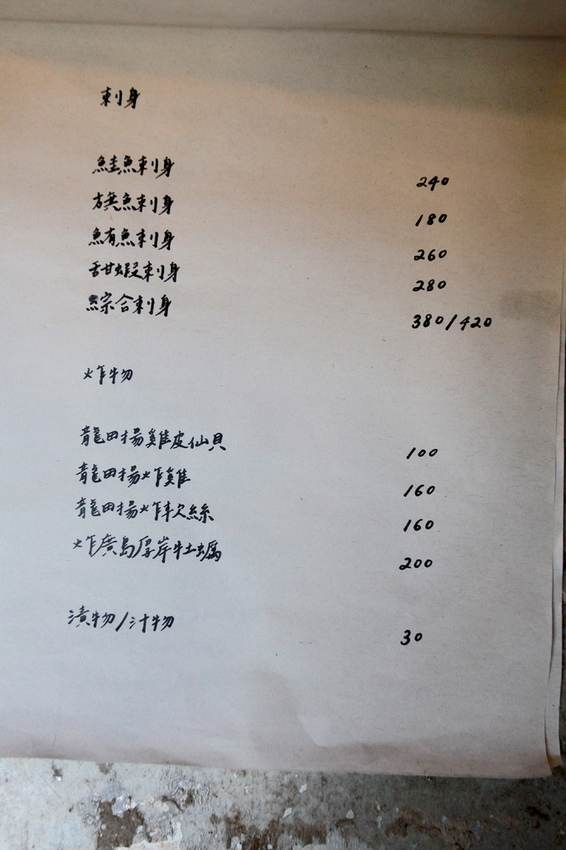 刺身
鮭魚刺身
240
旗魚刺身
180
鮪魚刺身
260
甜蝦刺身
280
綜合刺身
380/420
炸物
龍田揚雞皮仙貝
100
龍田揚炸雞
160
龍田揚炸軟絲
160
炸廣島厚岸牡蠣
200
漬物/汁物
30